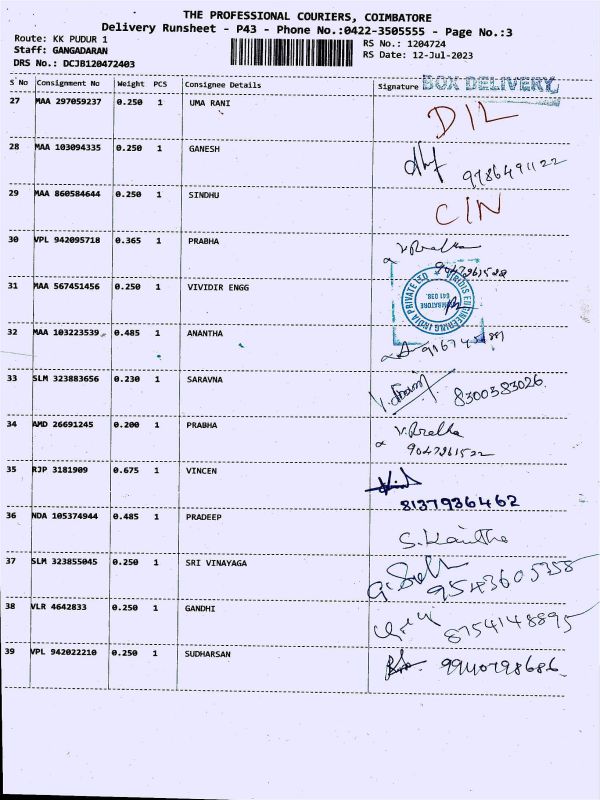 THE PROFESSIONAL COURIERS, COIMBATORE
Delivery Runsheet - P43 - Phone No.:0422-3505555 - Page No.:3
Route: KK PUDUR 1
RS No.: 1204724
Staff: GANGADARAN
RS Date: 12-Jul-2023
DRS No.: DCJB120472403
S No Consignment No Weight PCS Consignee Details Signature BOX DELIVERY
27 MAA 297059237 0.250 1 UMA RANI DIL
28 MAA 103094335 0.250 1 GANESH 9786491122
29 MAA 860584644 0.250 1 SINDHU CIN
30 VPL 942095718 0.365 1 PRABHA V.Prabha
31 MAA 567451456 0.250 1 VIVIDIR ENGG
32 MAA 103223539 0.485 1 ANANTHA
33 SLM 323883656 0.230 1 SARAVNA 8300583026
34 AMD 26691245 0.200 1 PRABHA V.Prabha
35 RJP 3181909 0.675 1 VINCEN
8137936462
36 NDA 105374944 0.485 1 PRADEEP
37 SLM 323855045 0.250 1 SRI VINAYAGA 9543605358
38 VLR 4642833 0.250 1 GANDHI 8754148895
39 VPL 942022210 0.250 1 SUDHARSAN 9940798686